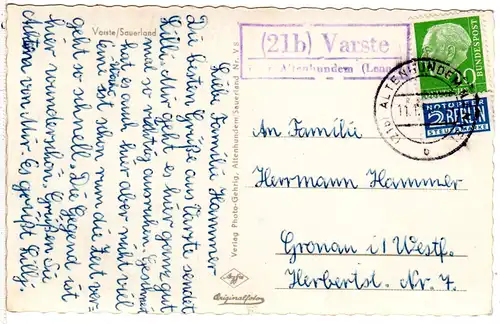 Varste/Sauerland
Liebe Familie Hammer
Die besten Grüße aus Varste sendet
Lilli. Mir geht es hier ganz gut
mal so richtig ausruhen. Geschneit
hat es auch hier aber nicht viel
schon rum die Zeit ver-
geht so schnell. Die Gegend ist
hier wunderschön. Grüßen Sie
von Mir Es grüßt Lilly
Verlag Photo-Gehrig, Altenhundem-Sauerland Nr. V 8
Agfa
Originalfoto
(21b) Varste
Altenhundem (Lenne
(21b) ALTENHUNDEM
b
DEUTSCHE BUNDESPOST
NOTOPFER
2 BERLIN
STEUERMARKE
An Familie
Herrmann Hammer
Gronau i/Westf.
Herbertst. Nr. 7.